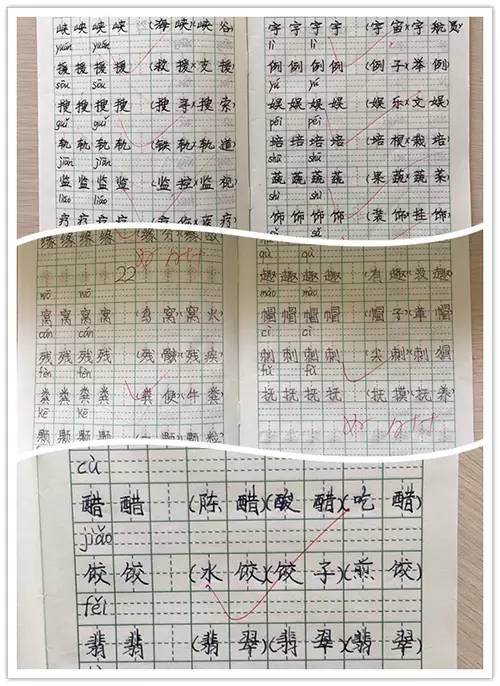 峡 峡 峡 峡 (海 峡)(峡 谷)
yuán yuán
援 援 援 援 (救 援)(支 援)
sōu sōu
搜 搜 搜 搜 (搜 寻)(搜 索)
guǐ guǐ
轨 轨 轨 轨 (铁 轨)(轨 道)
jiān jiān
监 监 监 监 (监 控)(监 视)
liáo liáo
疗 疗 疗 疗
宇 宇 宇 宇 (宇 宙)(宇 航员)
lì lì
例 例 例 例 (例 子)(举 例)
yú yú
娱 娱 娱 娱 (娱 乐)(文 娱)
péi péi
培 培 培 培 (培 根)(栽 培)
shū shū
蔬 蔬 蔬 蔬 (果 蔬)(蔬 菜)
shì shì
饰 饰 饰 饰 (装 饰)(挂 饰)
sǎ sǎ
缘 缘 缘 缘
22
wō wō
窝 窝 窝 窝 (鸟 窝)(窝 火)
cán cán
残 残 残 残 (残 骸)(残 疾)
fèn fèn
粪 粪 粪 粪 (粪 便)(牛 粪)
kē kē
颗 颗 颗 颗
qù qù
趣 趣 趣 趣 (有 趣)(没 趣)
mào mào
帽 帽 帽 帽 (帽 子)(草 帽)
cì cì
刺 刺 刺 刺 (尖 刺)(刺 猬)
fǔ fǔ
抚 抚 抚 抚 (抚 摸)(抚 养)
cù
醋 醋 (陈 醋)(酸 醋)(吃 醋)
jiǎo
饺 饺 (水 饺)(饺 子)(煎 饺)
fěi
翡 翡 (翡 翠)(翡 翠)(翡 翠)